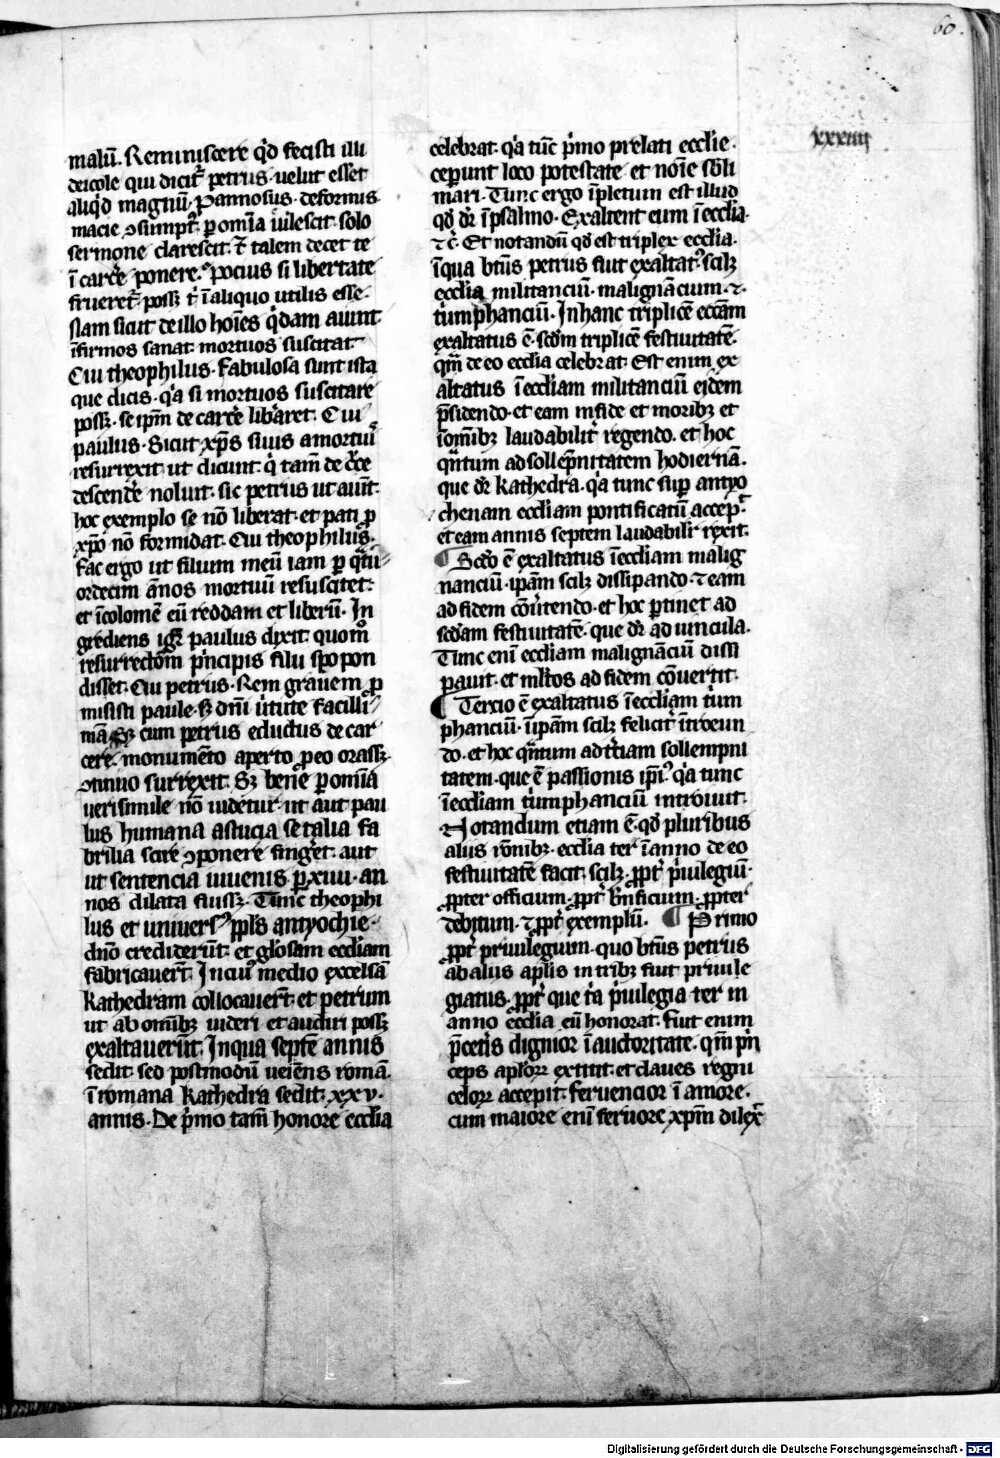 60.
xxxiiij
malū. Reminiscere qd fecisti illi
deicole qui dicit᷑ petrus. uelut esset
aliqͥd magnū. Pannosus. deformis
macie ꝯsumpt᷒. ꝑ omīa uilescit. solo
sermone clarescit. ⁊ talem decet te
ī carcͤe ponere. Pocius si libertate
frueret᷑ possꝫ tͥ ī aliquo utilis esse.
Nam sicut de illo hoīes qͥdam aiunt
īfirmos sanat. mortuos suscitat.
Cui theophilus. fabulosa sunt ista
que dicis. qͥa si mortuos suscitare
possꝫ. se ipm̄ de carcͤe libaret. Cui
paulus. Sicut xp̄s suus a mortuis
resurrexit ut dicunt. qͥ tam̄ de cͨce
descendͤe noluit. sic petrus ut aiūt.
hoc exemplo se nō liberat. et pati ꝓ
xpō nō formidat. Cui theophilus.
fac ergo ut filium meū iam ꝑ qͣtu
ordecim ānos mortuū resuscitet.
et īcolomē eū reddam et liberū. In
grediens igͥ paulus dixit. quom̄
resurrectōm pͥncipis filii spopon
disset. Cui petrus. Rem grauem ꝓ
misisti paule. sꝫ dn̄i uͥtute facilli
mā. Sꝫ cum petrus eductus de car
cere. monumēto aperto ꝓ eo orassꝫ
ꝯtinuo surrexit. Sꝫ bene ꝑ omīa
uerisimile nō uidetur. ut aut pau
lus humana astucia se talia fa
brilia scire ꝯponere fingͤet. aut
ut sentencia iuuenis ꝑ xiiii. an
nos dilata fuissꝫ. Tunc theophi
lus et uniuers᷒ ppl̄s antyochie.
dn̄o crediderūt. et gl̄osam eccliam
fabricauerūt. In cui᷒ medio excelsā
kathedram collocauerūt. et petrum
ut ab omībꝫ uideri et audiri possꝫ
exaltauerūt. In qua septē annis
sedit. sed postmodū ueiens romā.
ī romana kathedra sedit. xxv.
annis. De pͥmo tam̄ honore ecclia
celebrat. qͥa tūc pͥmo prelati ecclie.
ceperunt loco potestate et noīe subli
mari. Tunc ergo īpletum est illud
qd dr̄ ī psalmo. Exaltent eum ī ecclia.
⁊ c̄. Et notandū qd est triplex ecclia.
ī qua btūs petrus fuit exaltat᷒. scilꝫ
ecclia militanciū. malignācium. ⁊.
tͥumphanciū. In hanc triplicē eccām
exaltatus ē. scdm triplicē festiuitatē.
qm̄ de eo ecclia celebrat. Est enim ex
altatus ī eccliam militanciū eidem
p̄sidendo. et eam in fide et moribꝫ et
ī omībꝫ laudabilit᷑ regendo. et hoc
qͣntum ad sollēpnitatem hodiernā.
que dr̄ kathedra. qͥa tunc suꝑ antyo
chenam eccliam pontificatū accep̄.
et eam annis septem laudabilit᷑ rexit.
Scdo ē exaltatus ī eccliam malig
nanciū. ipām scilꝫ dissipando. ⁊ eam
ad fidem cōuͥtendo. et hoc ꝑtinet ad
scdam festiuitatē. que dr̄ ad uincula.
Tunc enī eccliam malignanciū dissi
pauit. et mltos ad fidem cōuertit.
Tercio ē exaltatus ī eccliam tͥum
phanciū. īipām scilꝫ felicit᷑ ītroeun
do. et hoc qͣntum ad tͨiam sollempni
tatem. que ē passionis ipi᷒. qͥa tunc
ī eccliam tͥumphanciū introiuit.
Notandum etiam ē. qd pluribus
aliis rōnibꝫ. ecclia ter ī anno de eo
festiuitatē facit. scilꝫ. ꝓpt᷑ pͥuilegiū.
ꝓpter officium. ꝓpt᷑ bn̄ficium. ꝓpter
debitum. ⁊ ꝓpt᷑ exemplū. Primo
ꝓpt᷑ priuilegium. quo btūs petrus
ab aliis aplīs in tribꝫ fuit priuile
giatus. ꝓpt᷑ que tͥa pͥuilegia ter in
anno ecclia eū honorat. fuit enim
p̄cetis dignior ī auctoritate. qm̄ pͥn
ceps aplorꝝ extitit. et claues regni
celorꝝ accepit. feruencior ī amore.
cum maiore enī feruore xp̄m dilex̄
Digitalisierung gefördert durch die Deutsche Forschungsgemeinschaft - DFG